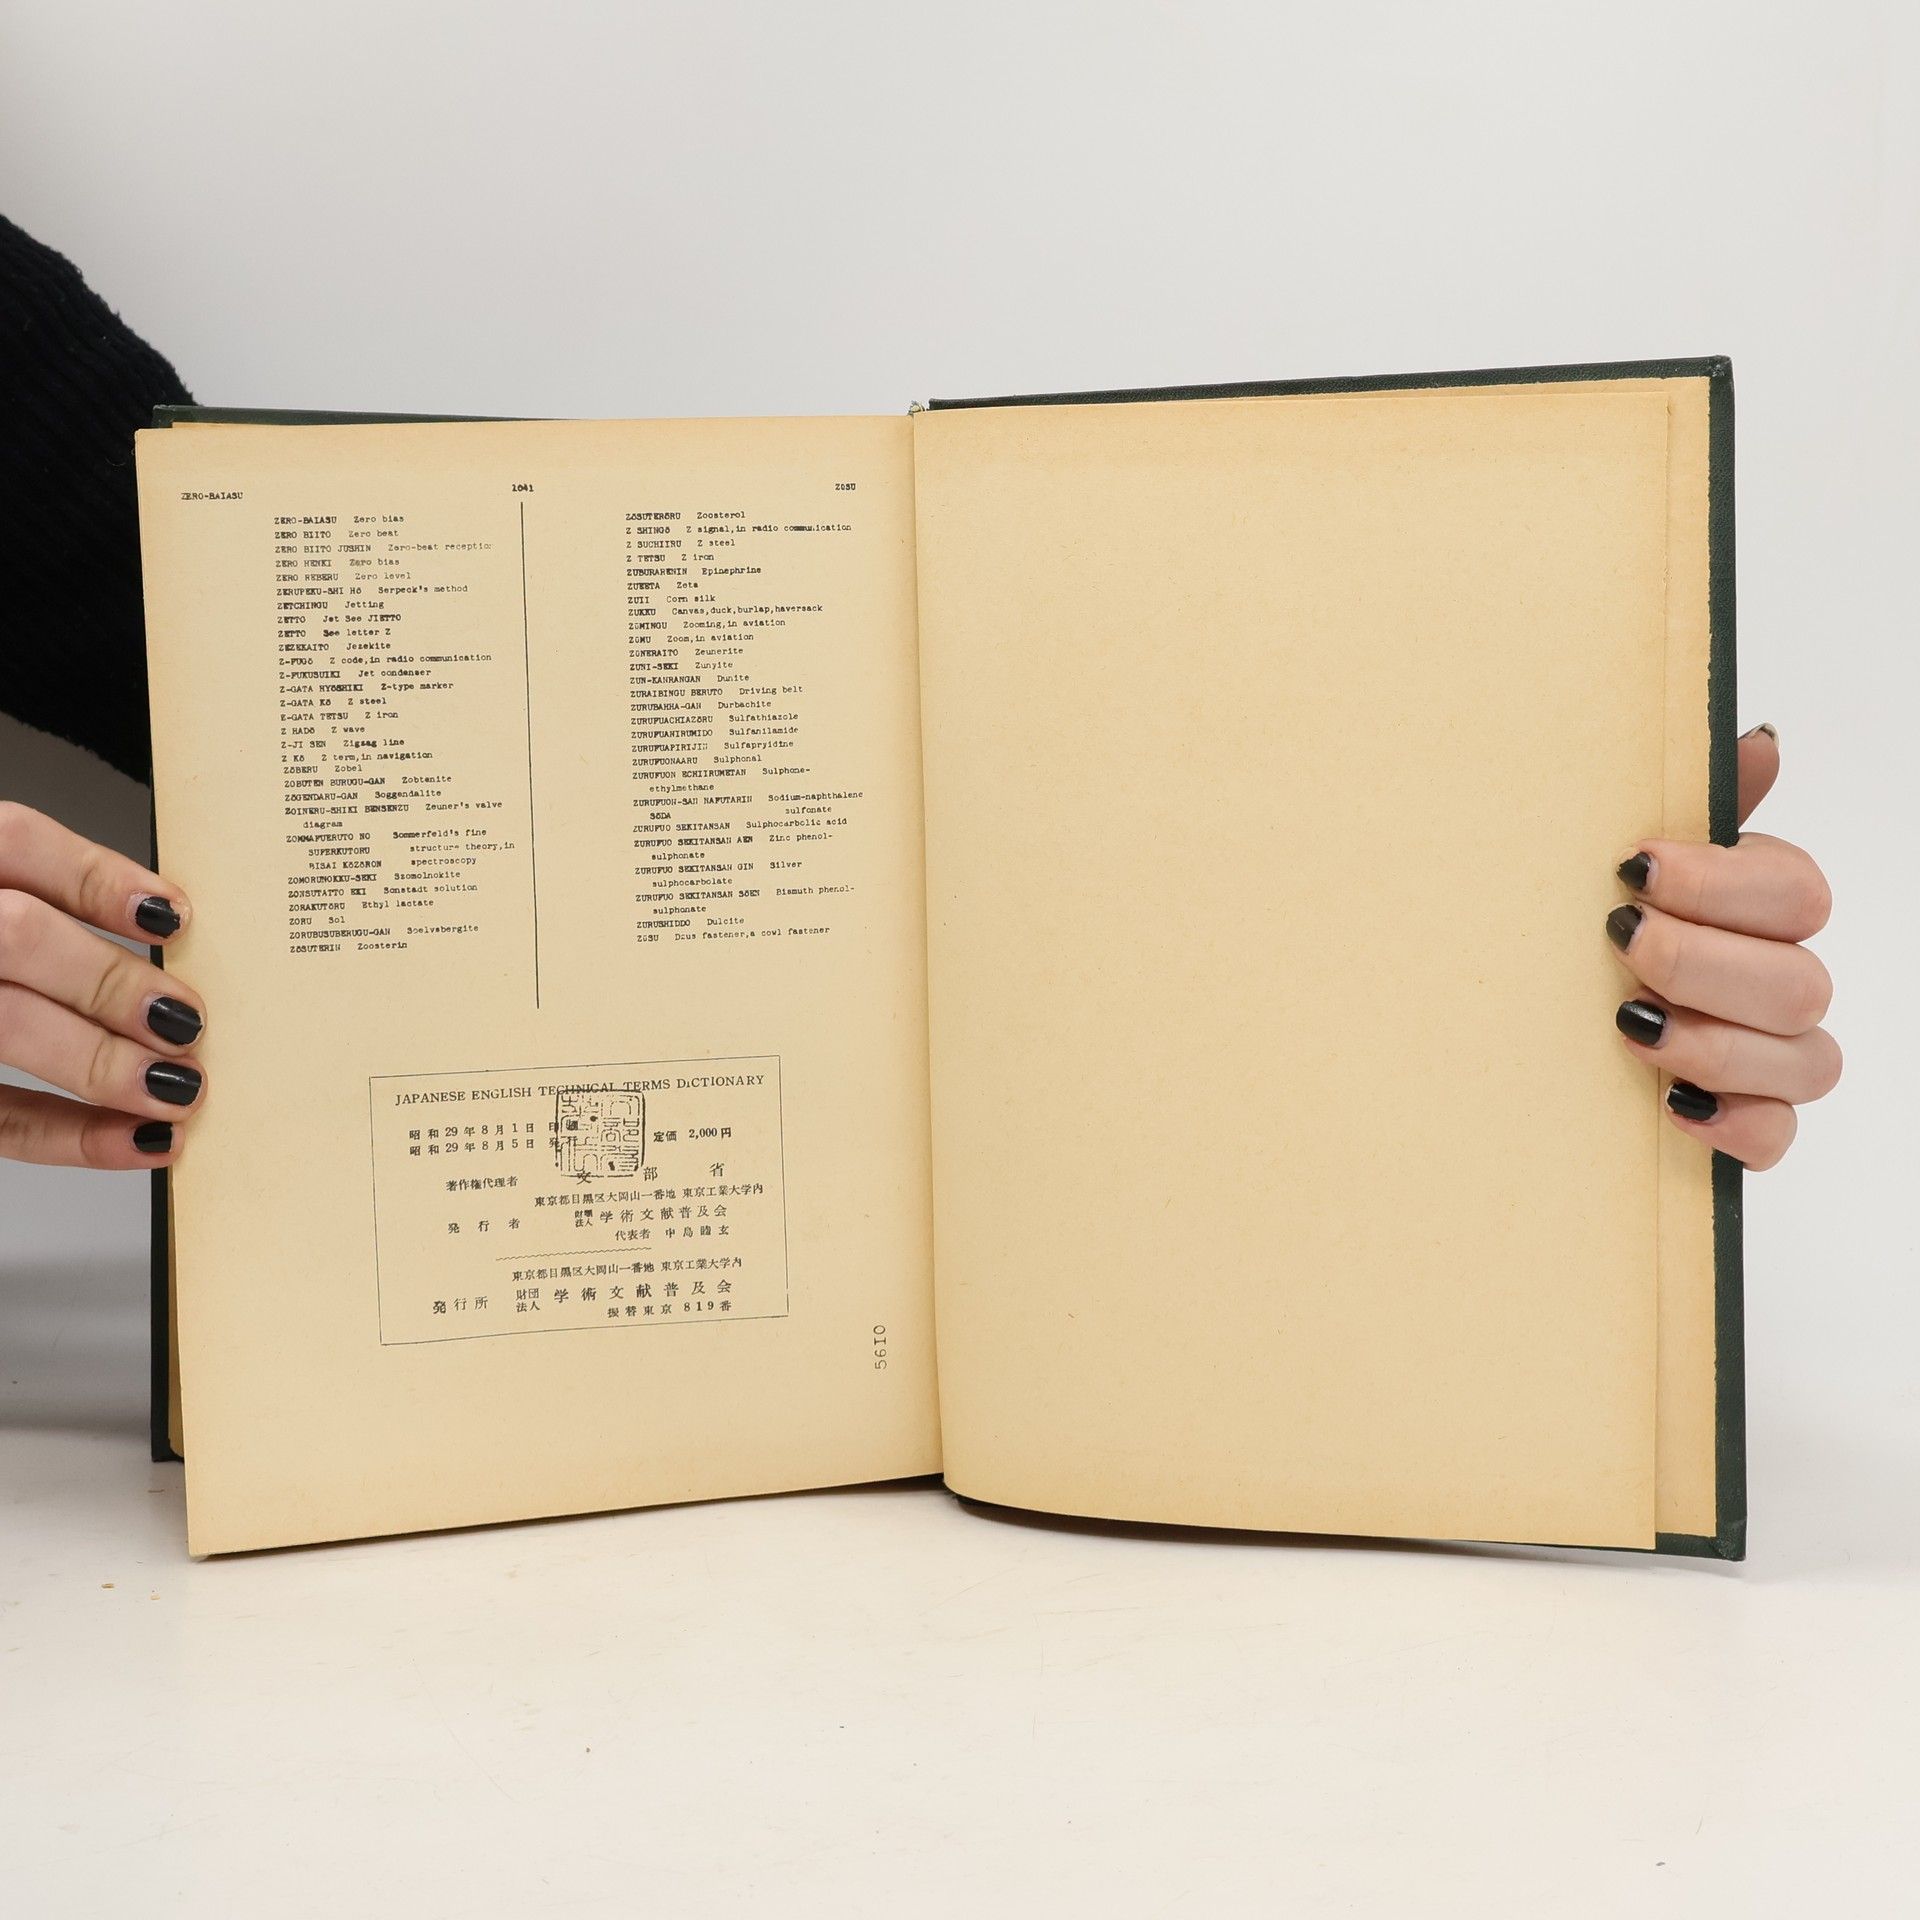 ZERO-BAIASU 1041 ZŌSU
ZERO-BAIASU Zero bias
ZERO BIITO Zero beat
ZERO BIITO JUSHIN Zero-beat receptio
ZERO HENKI Zero bias
ZERO REBERU Zero level
ZERUPEKU-SHI HŌ Serpeck's method
ZETCHINGU Jetting
ZETTO Jet See JIETTO
ZETTO See letter Z
ZEZEKAITO Jezekite
Z-FUGŌ Z code,in radio communication
Z-FUKUSUIKI Jet condenser
Z-GATA HYŌSHIKI Z-type marker
Z-GATA KŌ Z steel
E-GATA TETSU Z iron
Z HADŌ Z wave
Z-JI SEN Zigzag line
Z KŌ Z term,in navigation
ZŌBERU Zobel
ZOBUTEN BURUGU-GAN Zobtenite
ZŌGENDARU-GAN Soggendalite
ZOINERU-SHIKI BENSENZU Zeuner's valve
diagram
ZOMMAFUERUTO NO Sommerfeld's fine
SUPEKUTORU structure theory,in
BISAI KŌZŌRON spectroscopy
ZOMORUNOKKU-SEKI Szomolnokite
ZONSUTATTO EKI Sonstadt solution
ZORAKUTŌRU Ethyl lactate
ZORU Sol
ZORUBUSUBERUGU-GAN Soelvsbergite
ZŌSUTERIN Zoosterin
ZŌSUTERŌRU Zoosterol
Z SHINGŌ Z signal,in radio communication
Z SUCHIIRU Z steel
Z TETSU Z iron
ZUBURARENIN Epinephrine
ZUEETA Zeta
ZUII Corn silk
ZUKKU Canvas,duck,burlap,haversack
ZŪMINGU Zooming,in aviation
ZŪMU Zoom,in aviation
ZŪNERAITO Zeunerite
ZUNI-SEKI Zunyite
ZUN-KANRANGAN Dunite
ZURAIBINGU BERUTO Driving belt
ZURUBAHHA-GAN Durbachite
ZURUFUACHIAZŌRU Sulfathiazole
ZURUFUANIRUMIDO Sulfanilamide
ZURUFUAPIRIJIN Sulfapryidine
ZURUFUONAARU Sulphonal
ZURUFUON ECHIIRUMETAN Sulphone-
ethylmethane
ZURUFUON-SAN NAFUTARIN Sodium-naphthalene
SŌDA sulfonate
ZURUFUO SEKITANSAN Sulphocarbolic acid
ZURUFUO SEKITANSAN AEN Zinc phenol-
sulphonate
ZURUFUO SEKITANSAN GIN Silver
sulphocarbolate
ZURUFUO SEKITANSAN SŌEN Bismuth phenol-
sulphonate
ZURUSHIDDO Dulcite
ZŪSU Dzus fastener,a cowl fastener
JAPANESE ENGLISH TECHNICAL TERMS DICTIONARY
昭和29年8月1日 印刷
昭和29年8月5日 発行 定価 2,000円
著作権代理者 文部省
東京都目黒区大岡山一番地 東京工業大学内
発行者 財団法人 学術文献普及会
代表者 中島睦玄
東京都目黒区大岡山一番地 東京工業大学内
発行所 財団法人 学術文献普及会
振替東京 819番
5610